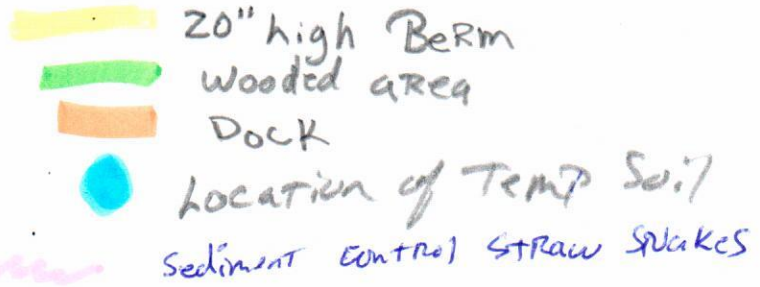 20" high Berm
Wooded area
Dock
Location of Temp Soil
Sediment control straw snakes